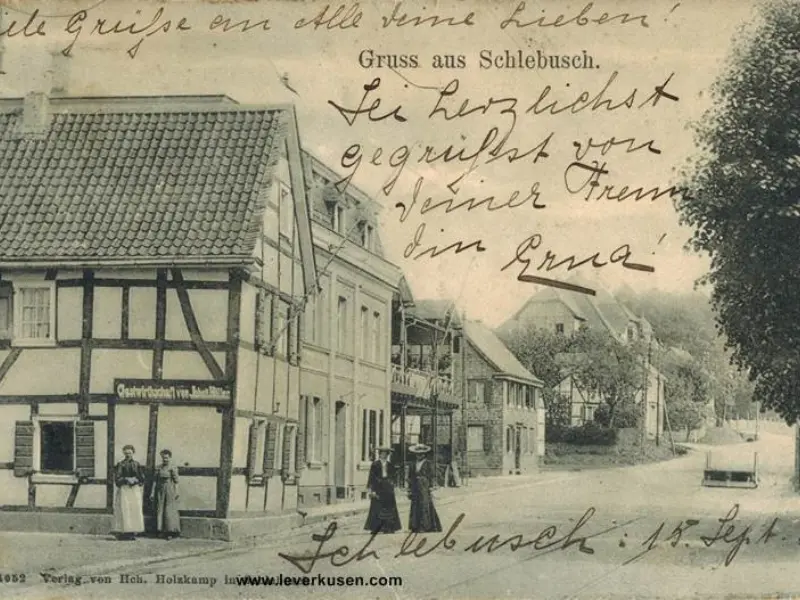 Viele Grüße an Alle deine Lieben!
Gruss aus Schlebusch.
Sei herzlichst
gegrüßt von
deiner Freun
din Erna!
Gastwirthschaft von
Schlebusch: 15. Sept.
Verlag von Hch. Holzkamp in
www.leverkusen.com